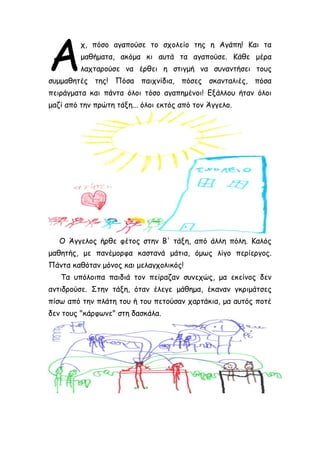 Αχ, πόσο αγαπούσε το σχολείο της η Αγάπη! Και τα
μαθήματα, ακόμα κι αυτά τα αγαπούσε. Κάθε μέρα
λαχταρούσε να έρθει η στιγμή να συναντήσει τους
συμμαθητές της! Πόσα παιχνίδια, πόσες σκανταλιές, πόσα
πειράγματα και πάντα όλοι τόσο αγαπημένοι! Εξάλλου ήταν όλοι
μαζί από την πρώτη τάξη... όλοι εκτός από τον Άγγελο.
ΣΧΟΛΕΙΟ
Ο Άγγελος ήρθε φέτος στην Β' τάξη, από άλλη πόλη. Καλός
μαθητής, με πανέμορφα καστανά μάτια, όμως λίγο περίεργος.
Πάντα καθόταν μόνος και μελαγχολικός!
Τα υπόλοιπα παιδιά τον πείραζαν συνεχώς, μα εκείνος δεν
αντιδρούσε. Στην τάξη, όταν έλεγε μάθημα, έκαναν γκριμάτσες
πίσω από την πλάτη του ή του πετούσαν χαρτάκια, μα αυτός ποτέ
δεν τους "κάρφωνε" στη δασκάλα.